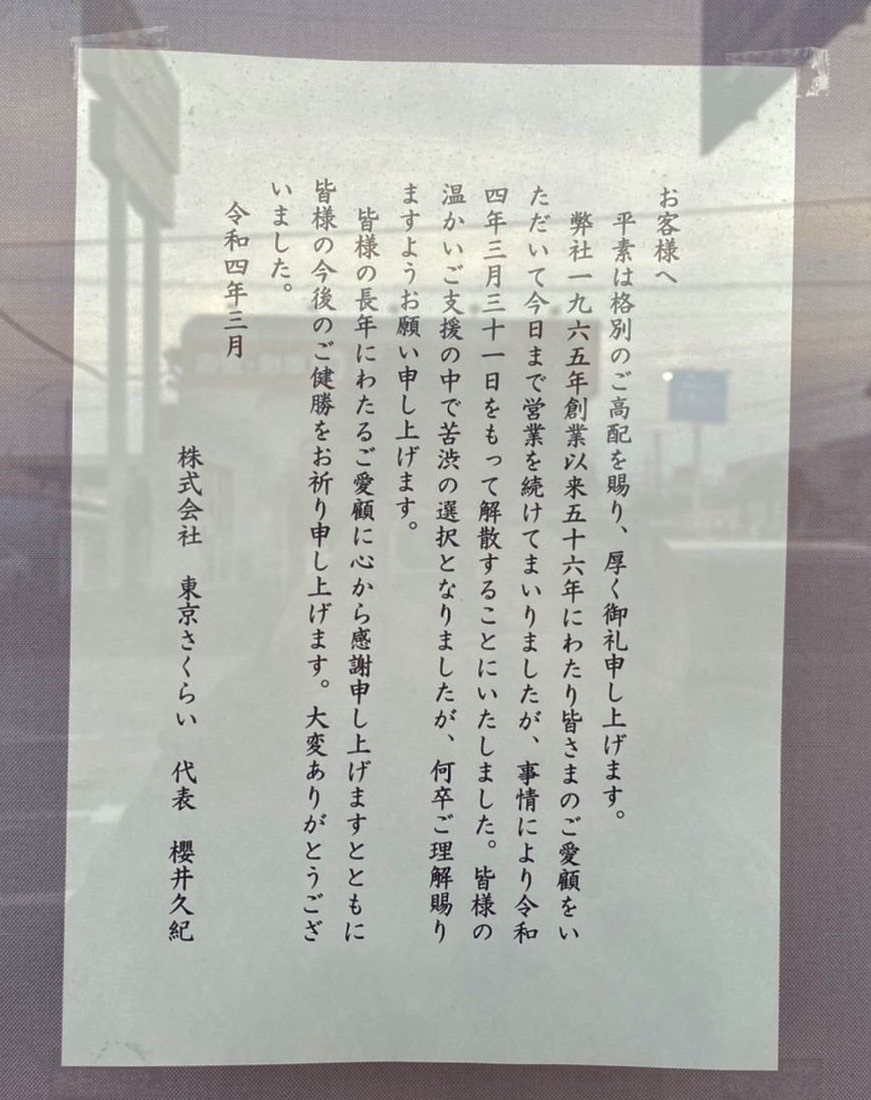 お客様へ
平素は格別のご高配を賜り、厚く御礼申し上げます。
弊社一九六五年創業以来五十六年にわたり皆さまのご愛顧をい
ただいて今日まで営業を続けてまいりましたが、事情により令和
四年三月三十一日をもって解散することにいたしました。皆様の
温かいご支援の中で苦渋の選択となりましたが、何卒ご理解賜り
ますようお願い申し上げます。
皆様の長年にわたるご愛顧に心から感謝申し上げますとともに
皆様の今後のご健勝をお祈り申し上げます。大変ありがとうござ
いました。
令和四年三月
株式会社　東京さくらい　代表　櫻井久紀